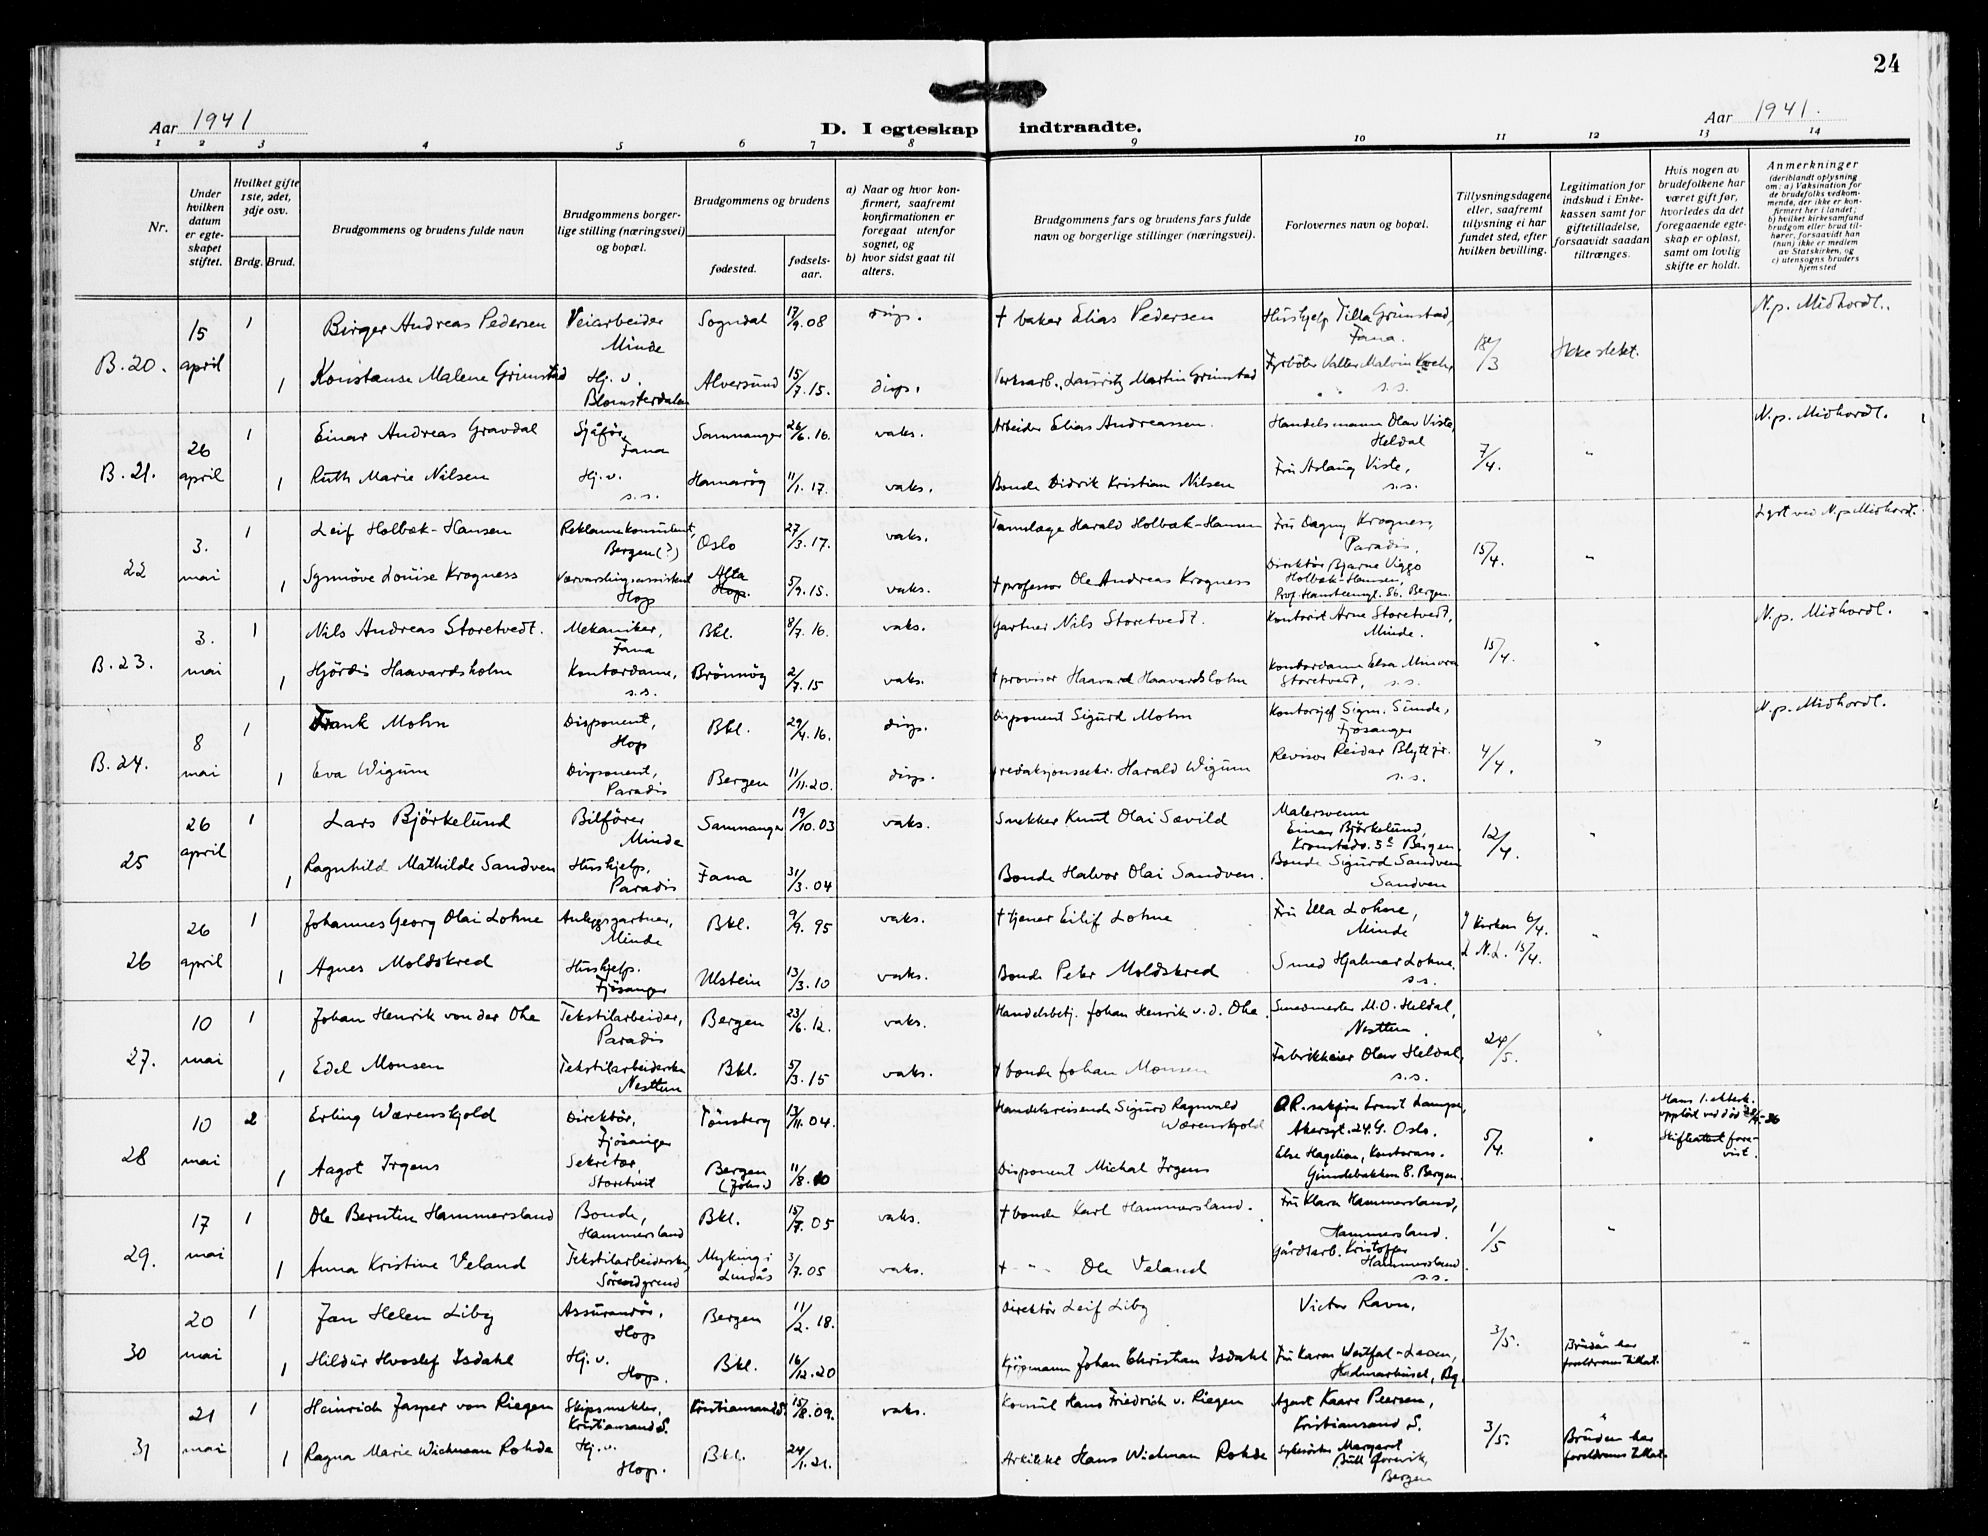 24
Aar 1941
D. I egteskap indtraadte.
Aar 1941.
1 2 3 4 5 6 7 8 9 10 11 12 13 14
Nr.
Under hvilken datum er egte-skapet stiftet.
Hvilket gifte 1ste, 2det, 3dje osv.
Brdg. Brud.
Brudgommens og brudens fulde navn
Brudgommens borger-lige stilling (næringsvei) og bopæl.
Brudgommens og brudens
fødested.
fødsels-aar.
a) Naar og hvor kon-firmert, saafremt konfirmationen er foregaat utenfor sognet, og
b) hvor sidst gaat til alters.
Brudgommens fars og brudens fars fulde navn og borgerlige stillinger (næringsvei).
Forlovernes navn og bopæl.
Tillysningsdagene eller, saafremt tillysning ei har fundet sted, efter hvilken bevilling.
Legitimation for indskud i Enke-kassen samt for giftetilladelse, forsaavidt saadan tiltrænges.
Hvis nogen av brudefolkene har været gift før, hvorledes da det foregaaende egte-skap er opløst, samt om lovlig skifte er holdt.
Anmerkninger (deriblandt oplysning om: a) Vaksination for de brudefolks vedkom-mende, der ikke er kon-firmert her i landet; b) hvilket kirkesamfund brudgom eller brud til-hører, forsaavidt han (hun) ikke er medlem av Statskirken, og c) utensogns bruders hjemsted
B.20. 15 april 1 Birger Andreas Pedersen Veiarbeider Minde Sogndal 17/9.08 disp. + baker Elias Pedersen Hushjelp Tilla Grimstad, Fana. 18/3 Ikke slekt. N.p. Midhordl.
1 Konstanse Malene Grimstad Hj. v. Blomsterdalen Alversund 15/7.15. disp. Verksarb. Lauritz Martin Grimstad Fyrböter Valter Malvin Koch, s.s.
B.21. 26 april 1 Einar Andreas Gravdal Sjåför, Fana Samnanger 26/6.16. vaks. Arbeider Elias Andreassen. Handelsmann Olav Viste, Heldal 7/4. " N.p. Midhordl.
1 Ruth Marie Nilsen Hj. v. s.s. Hamaröy 11/1.17. vaks. Bonde Didrik Kristian Nilsen Fru Aslaug Viste, s.s.
22 3. mai 1 Leif Holbæk-Hansen Reklamekonsulent, Bergen (?) Oslo 27/3.17. vaks. Tannlæge Harald Holbæk-Hansen Fru Dagny Krogness, Paradis. 15/4. " Lyst ved N.p. Midhordl.
1 Synnöve Louise Krogness Værvarslingsassistent Hop Alta Hop. 5/9.15. vaks. + professor Ole Andreas Krogness Direktör Bjarne Viggo Holbæk-Hansen, Prof. Hansteensgt. 56. Bergen.
B.23. 3. mai 1 Nils Andreas Storetvedt. Mekaniker, Fana Bkl. 8/7.16. vaks. Gartner Nils Storetvedt. Kontorist Arne Storetvedt, Minde. 15/4. " N.p. Midhordl.
1 Hjördis Haavardsholm Kontordame, s.s. Brönnöy 2/7.15 vaks. + provisor Haavard Haavardsholm Kontordame Elsa Minora Storetvedt, s.s.
B.24. 8 mai 1 Frank Mohn Disponent, Hop Bkl. 29/4.16. disp. Disponent Sigurd Mohn Kontorsjef Sigm. Sunde, Fjösanger 4/4. " N.p. Midhordl.
1 Eva Wigum Disponent, Paradis Bergen 11/11.20. disp. + redaksjonssekr. Harald Wigum Revisor Reidar Blytt jr. s.s.
25 26 april 1 Lars Björkelund Bilförer Minde Samnanger 19/10.03 vaks. Snekker Knut Olai Sævild Malersvenn Einar Björkelund, Kronstadv. 5c Bergen. 12/4. "
1 Ragnhild Mathilde Sandven Hushjelp, Paradis Fana 31/3.04 Bonde Halvor Olai Sandven. Bonde Sigurd Sandven Sandven
26 26 april 1 Johannes Georg Olai Lohne Anlegsgartner, Minde Bkl. 9/9.95 vaks. + tjener Eilif Lohne Fru Ella Lohne, Minde I kirken 6/4. "
1 Agnes Moldskred Hushjelp. Fjösanger Ulstein 13/3.10 vaks. Bonde Peter Moldskred Smed Hjalmar Lohne. s.s. L N.L. 15/4.
27. 10 mai 1 Johan Henrik von der Ohe Tekstilarbeider, Paradis Bergen 23/6.12. vaks. Handelsbetj. Johan Henrik v.d. Ohe. Smedmester M.O. Heldal, Nesttun. 24/5. "
1 Edel Monsen Tekstilarbeiderske Nesttun Bkl. 5/3.15 vaks. + bonde Johan Monsen Fabrikkeier Olav Heldal, s.s.
28 10 mai 2 Erling Wærenskjold Direktör, Fjösanger Tönsberg 13/11.04. Handelsreisende Sigurd Ragnvald Wærenskjold O.R. sakförer Ernst Lampe, Akersgt. 24.G. Oslo. 5/4. " Hans 1. ektesk. opplöst ved död Skifteattest fore-vist.
1 Aagot Irgens Sekretær, Storetveit Bergen (Johs) 11/8.10 Disponent Michal Irgens Else Hagelien, Kontorass. Gimlebakken 8. Bergen.
29. 17 mai 1 Ole Berntin Hammersland Bonde, Hammersland Bkl. 15/7.05 vaks. + bonde Karl Hammersland. Fru Klara Hammersland, Hammersland. 1/5 "
1 Anna Kristine Veland Tekstilarbeiderske, Myking i Lindås 3/7.05 vaks. + " Ole Veland Gårdsarb. Kristoffer Hammersland. s.s.
30 20 mai 1 Jan Helen Liby Assurandör, Hop Bergen 11/2.18. Direktör Leif Liby Victor Ravn, 3/5. Bruden har foreldrenes tillat.
1 Hildur Hvoslef Isdahl Hj. v. Hop. Bkl. 16/12.20 Kjöpmann Johan Christian Isdahl Fru Karen Westfal-Larsen, Bg.
31 21 mai 1 Heinrich Jasper von Riegen Skipsmekler, Kristiansand S. Kristiansand S. 15/8.09. vaks. Konsul Hans Friedrich v. Riegen Agent Kaare Peersen, Kristiansand S. 3/5. " Bruden har foreldrenes tillat.
1 Ragna Marie Wichmann Rohde Hj. v. Hop. Bkl. 24/1.21. Arkitekt Hans Wichman Rohde Margaret Bull Bergen